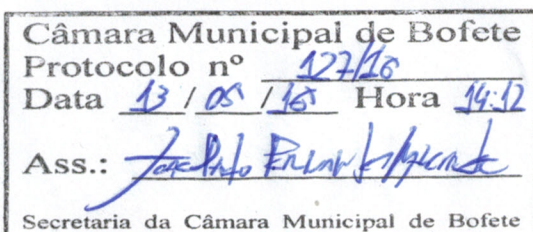 Câmara Municipal de Bofete
Protocolo nº 127/16
Data 13 / 05 / 16 Hora 14:12
Ass.:
Secretaria da Câmara Municipal de Bofete